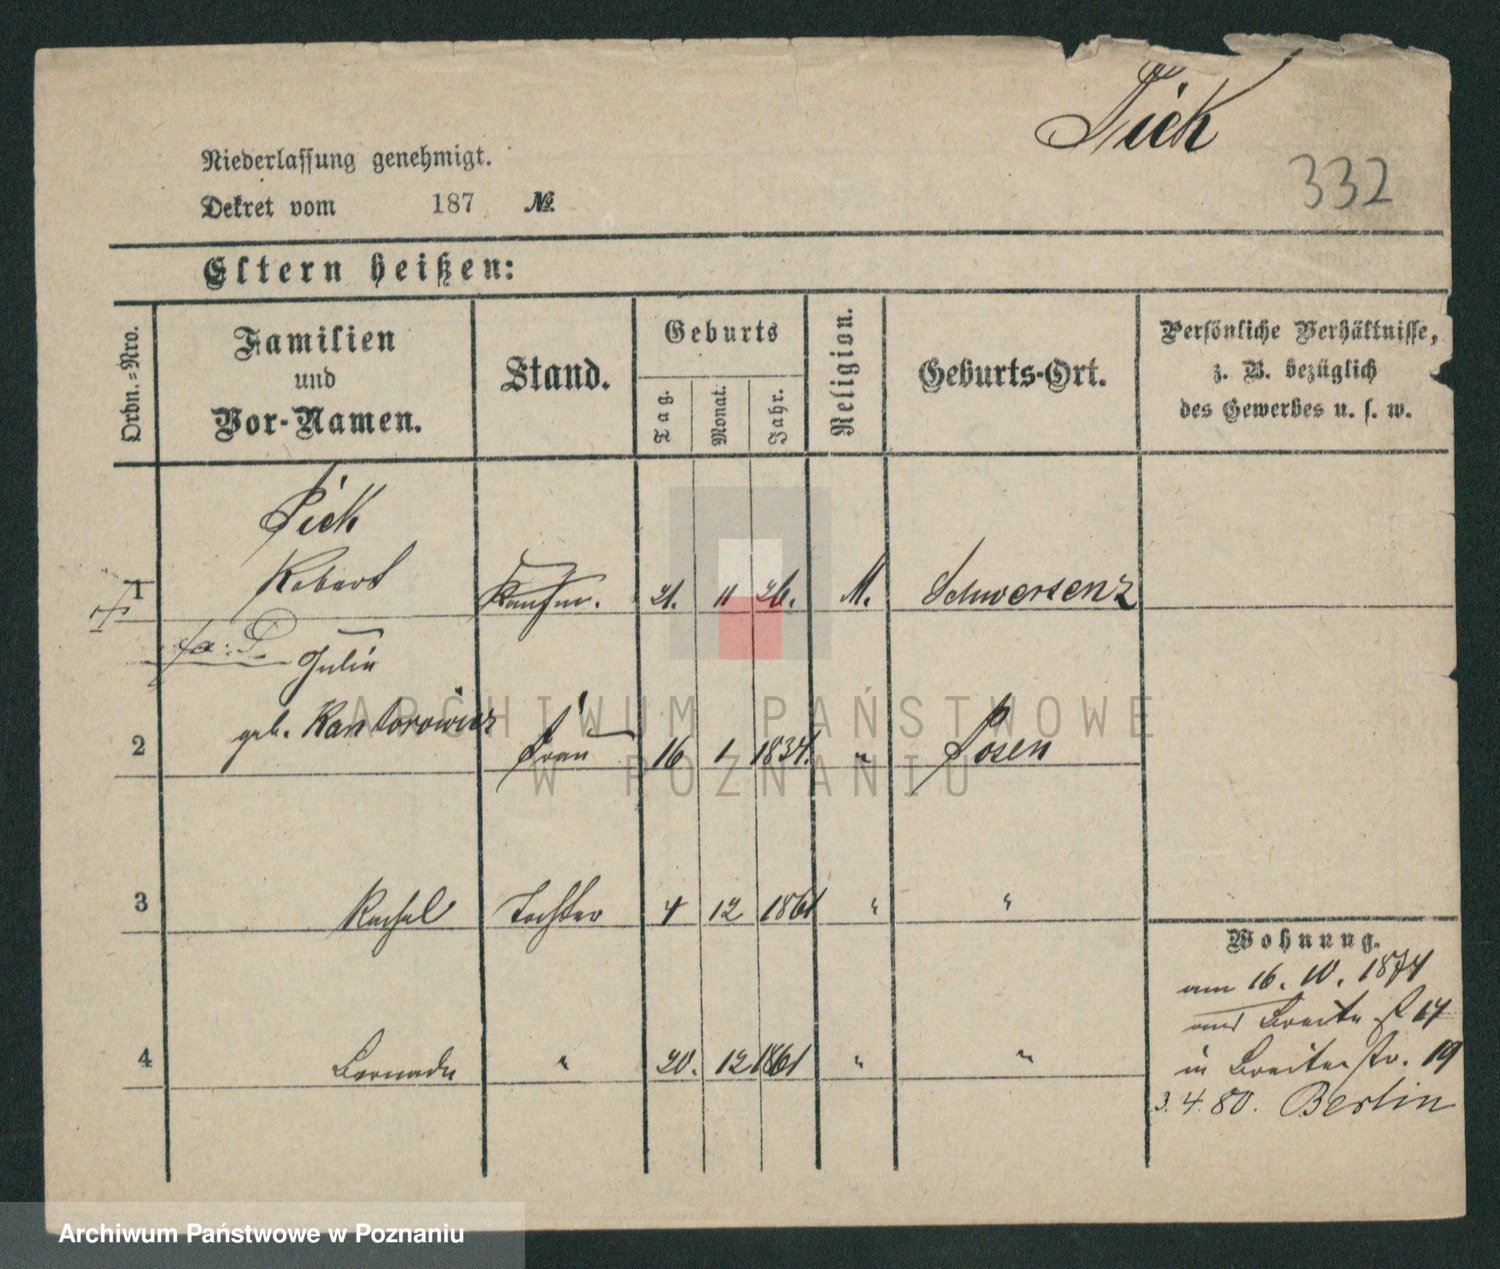 Pick
332
Niederlassung genehmigt.
Dekret vom 187 №
Eltern heißen:
Ordn.-Nro.
Familien
und
Vor-Namen.
Stand.
Geburts
Tag.
Monat.
Jahr.
Religion.
Geburts-Ort.
Persönliche Verhältnisse,
z. B. bezüglich
des Gewerbes u. s. w.
Pick
1 Robert Kaufm. 21. 11 26. M. Schwersenz
Julie
2 geb. Kantorowicz Frau 16 1 1834. " Posen
3 Rachel Tochter 4 12 1861 " "
4 " 20. 12 1861 " "
Wohnung.
am 16. 10. 1874
aus Breite 17
in Breitestr. 19
3. 4. 80. Berlin
ARCHIWUM PAŃSTWOWE
W POZNANIU
Archiwum Państwowe w Poznaniu